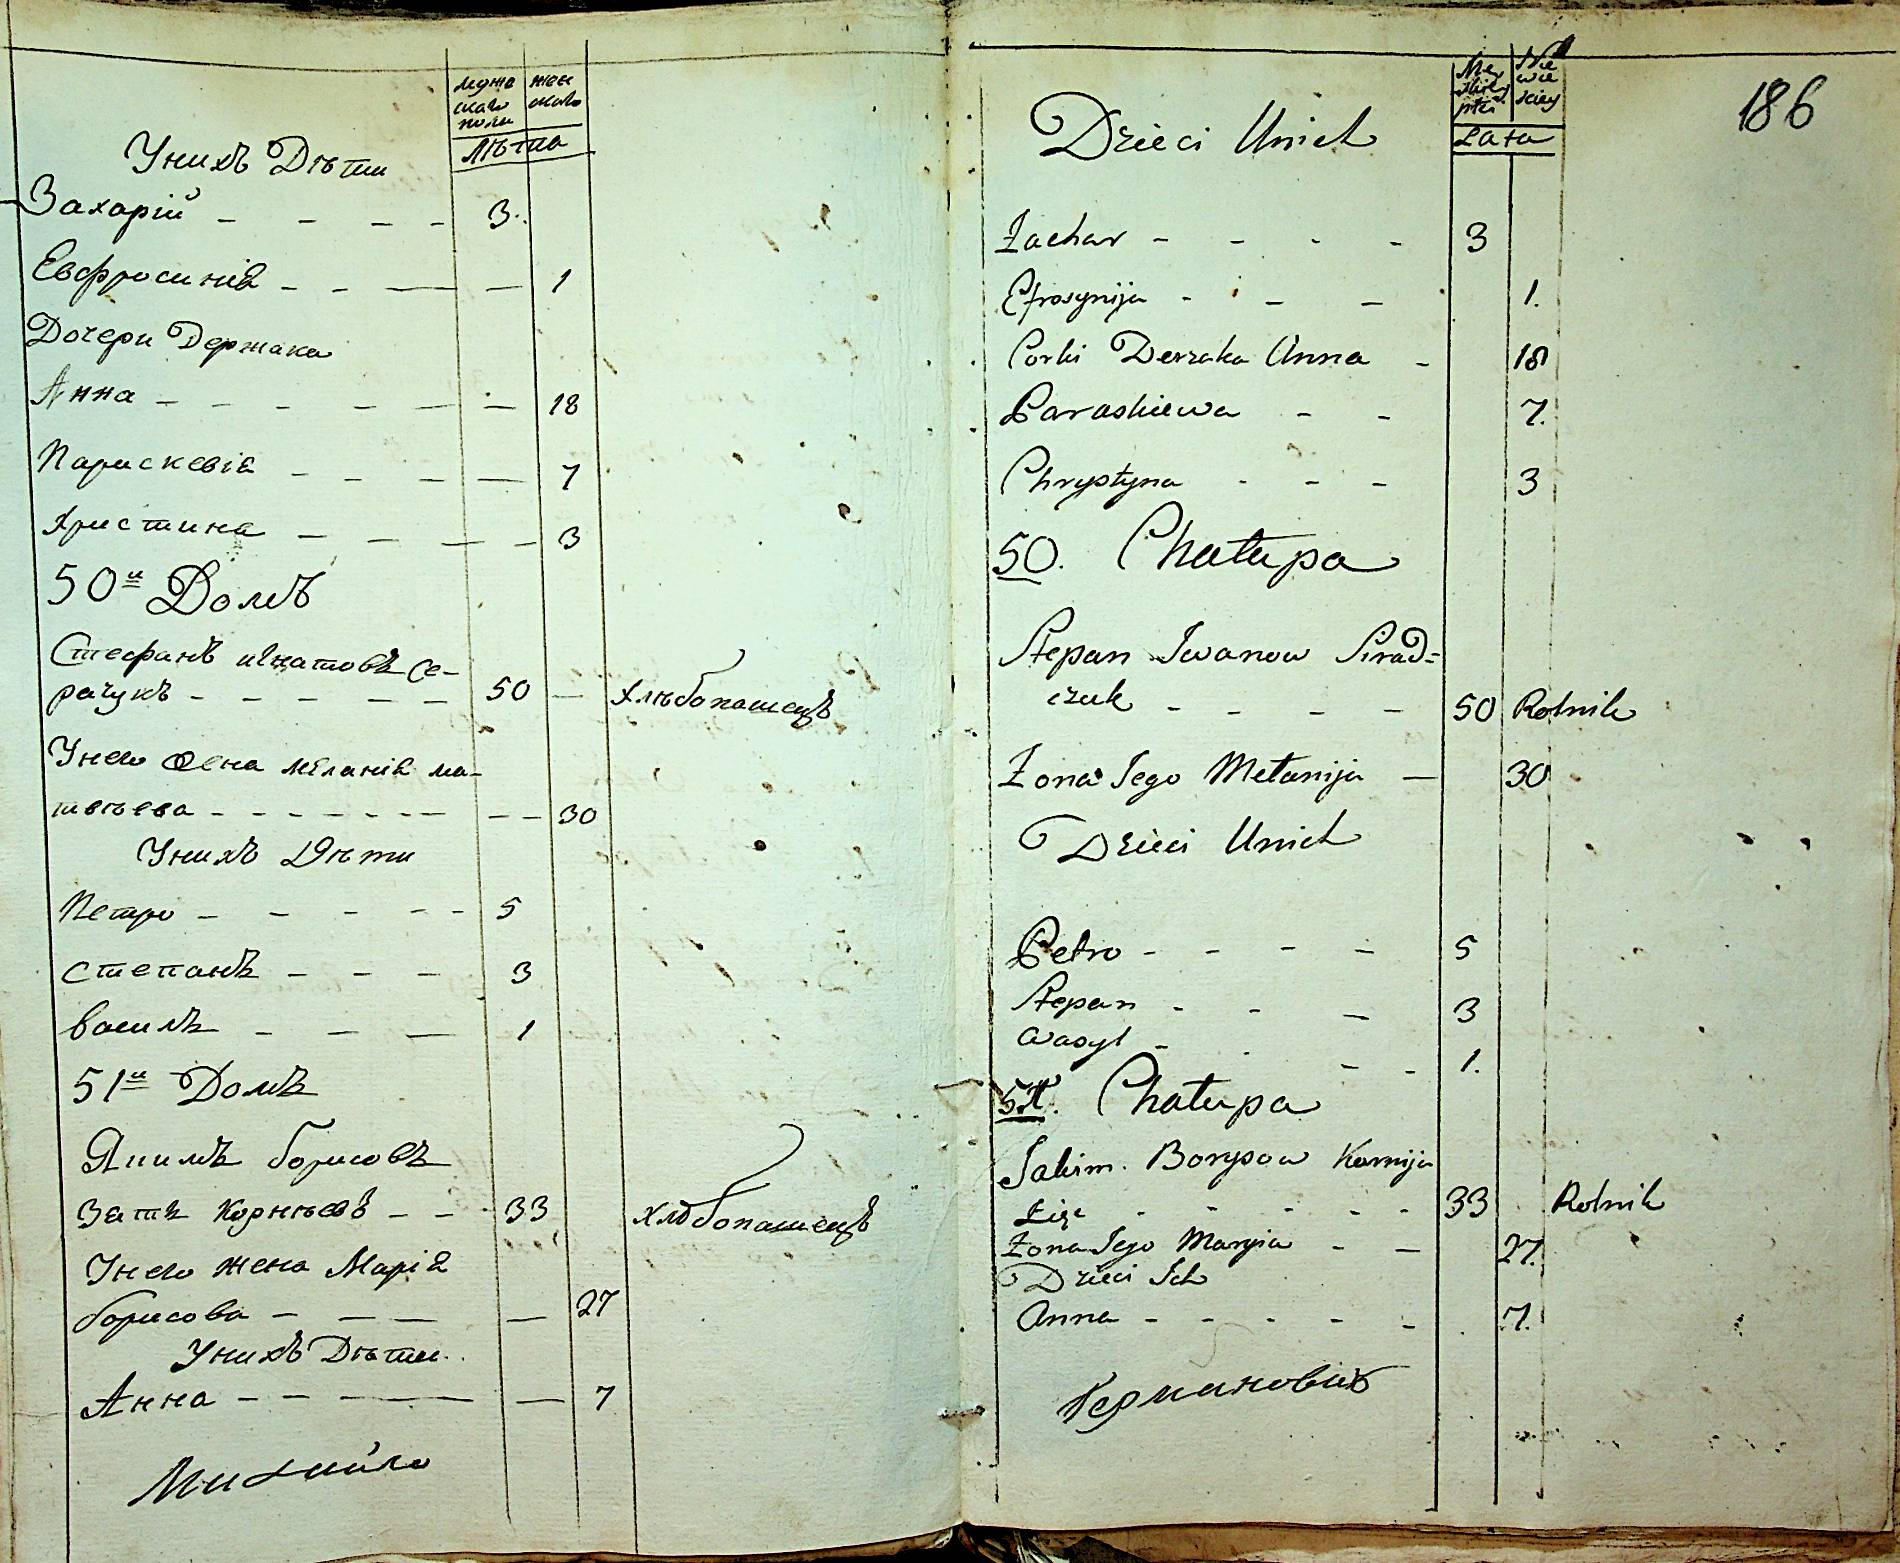 мужс
каго
пола
жен
скаго
лѣта
У нихъ Дѣти
Захарій - - - - 3.
Евфросинія - - - - 1
Дочери Держака
Анна - - - - - 18
Парискевія - - - - 7
Христина - - - - 3
50й Домъ
Стефанъ игнатовъ Се-
рачукъ - - - - - 50 - хлѣбопашецъ
У него жена меланія ма-
твѣева - - - - - - - 30
У нихъ Дѣти
Петро - - - - - 5
степанъ - - - 3
василь - - - 1
51й Домъ
Якимъ борисовъ
зать Корнѣевъ - - 33 хлѣбопашецъ
У него жена Марія
борисова - - - - 27
У нихъ Дѣти.
Анна - - - - - 7
Михайло
186
Męz
skiey
płci
Nie
wie
sciey
Lata
Dzieci Unich
Zachar - - - - 3
Efrosynija - - - - 1.
Corki Derzaka Anna - 18
Paraskiewa - - 7.
Chrystyna - - - 3
50. Chałupa
Stepan Iwanow Sirad=
czuk - - - - 50 Rolnik
Zona Jego Mełanija - 30
Dzieci Unich
Petro - - - - 5
Stepan - - - 3
Wasyl - - - - 1.
51. Chałupa
Jakim. Borysow Kornija
Zięc - - - - - 33 Rolnik
Zona Jego Maryia - - 27.
Dzieci Ich
Anna - - - - - 7.
Германовичъ